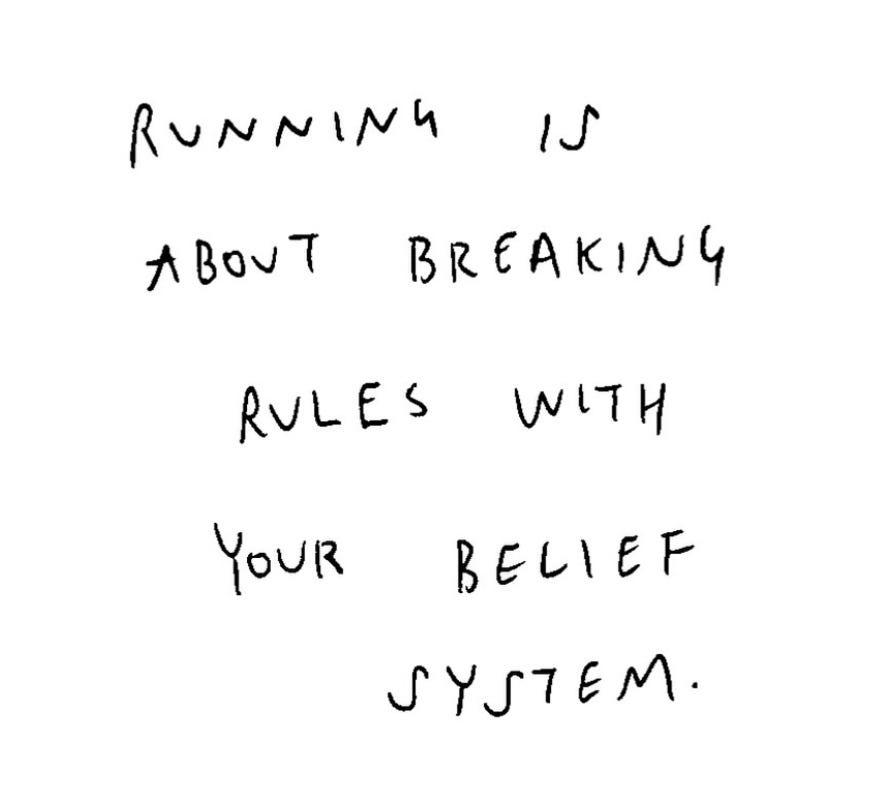 RUNNING IS
ABOUT BREAKING
RULES WITH
YOUR BELIEF
SYSTEM.